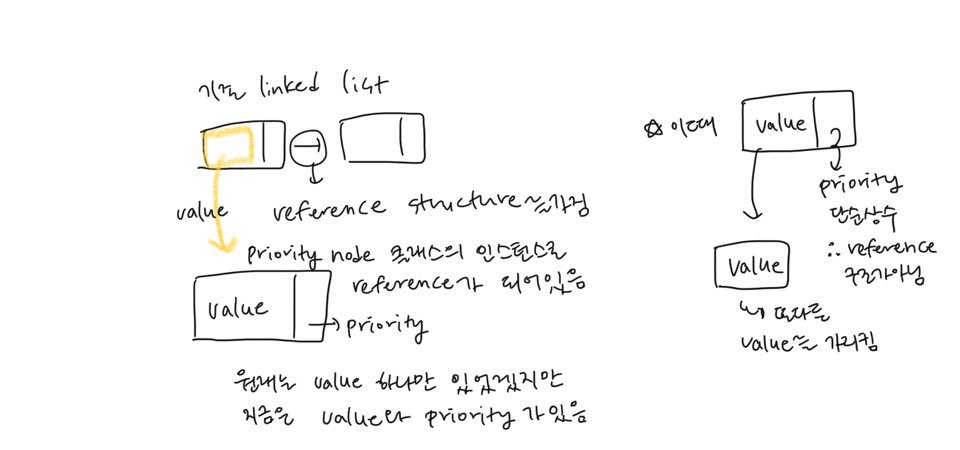 기존 linked list
value
reference structure를 가정
priority node 클래스의 인스턴스로
reference가 되어있음
value
→ priority
원래는 value 하나만 있었겠지만
지금은 value와 priority가 있음
☆ 이때
value
2
priority
단순상수
∴ reference
구조가아님
value
↳ 또다른
value를 가리킴